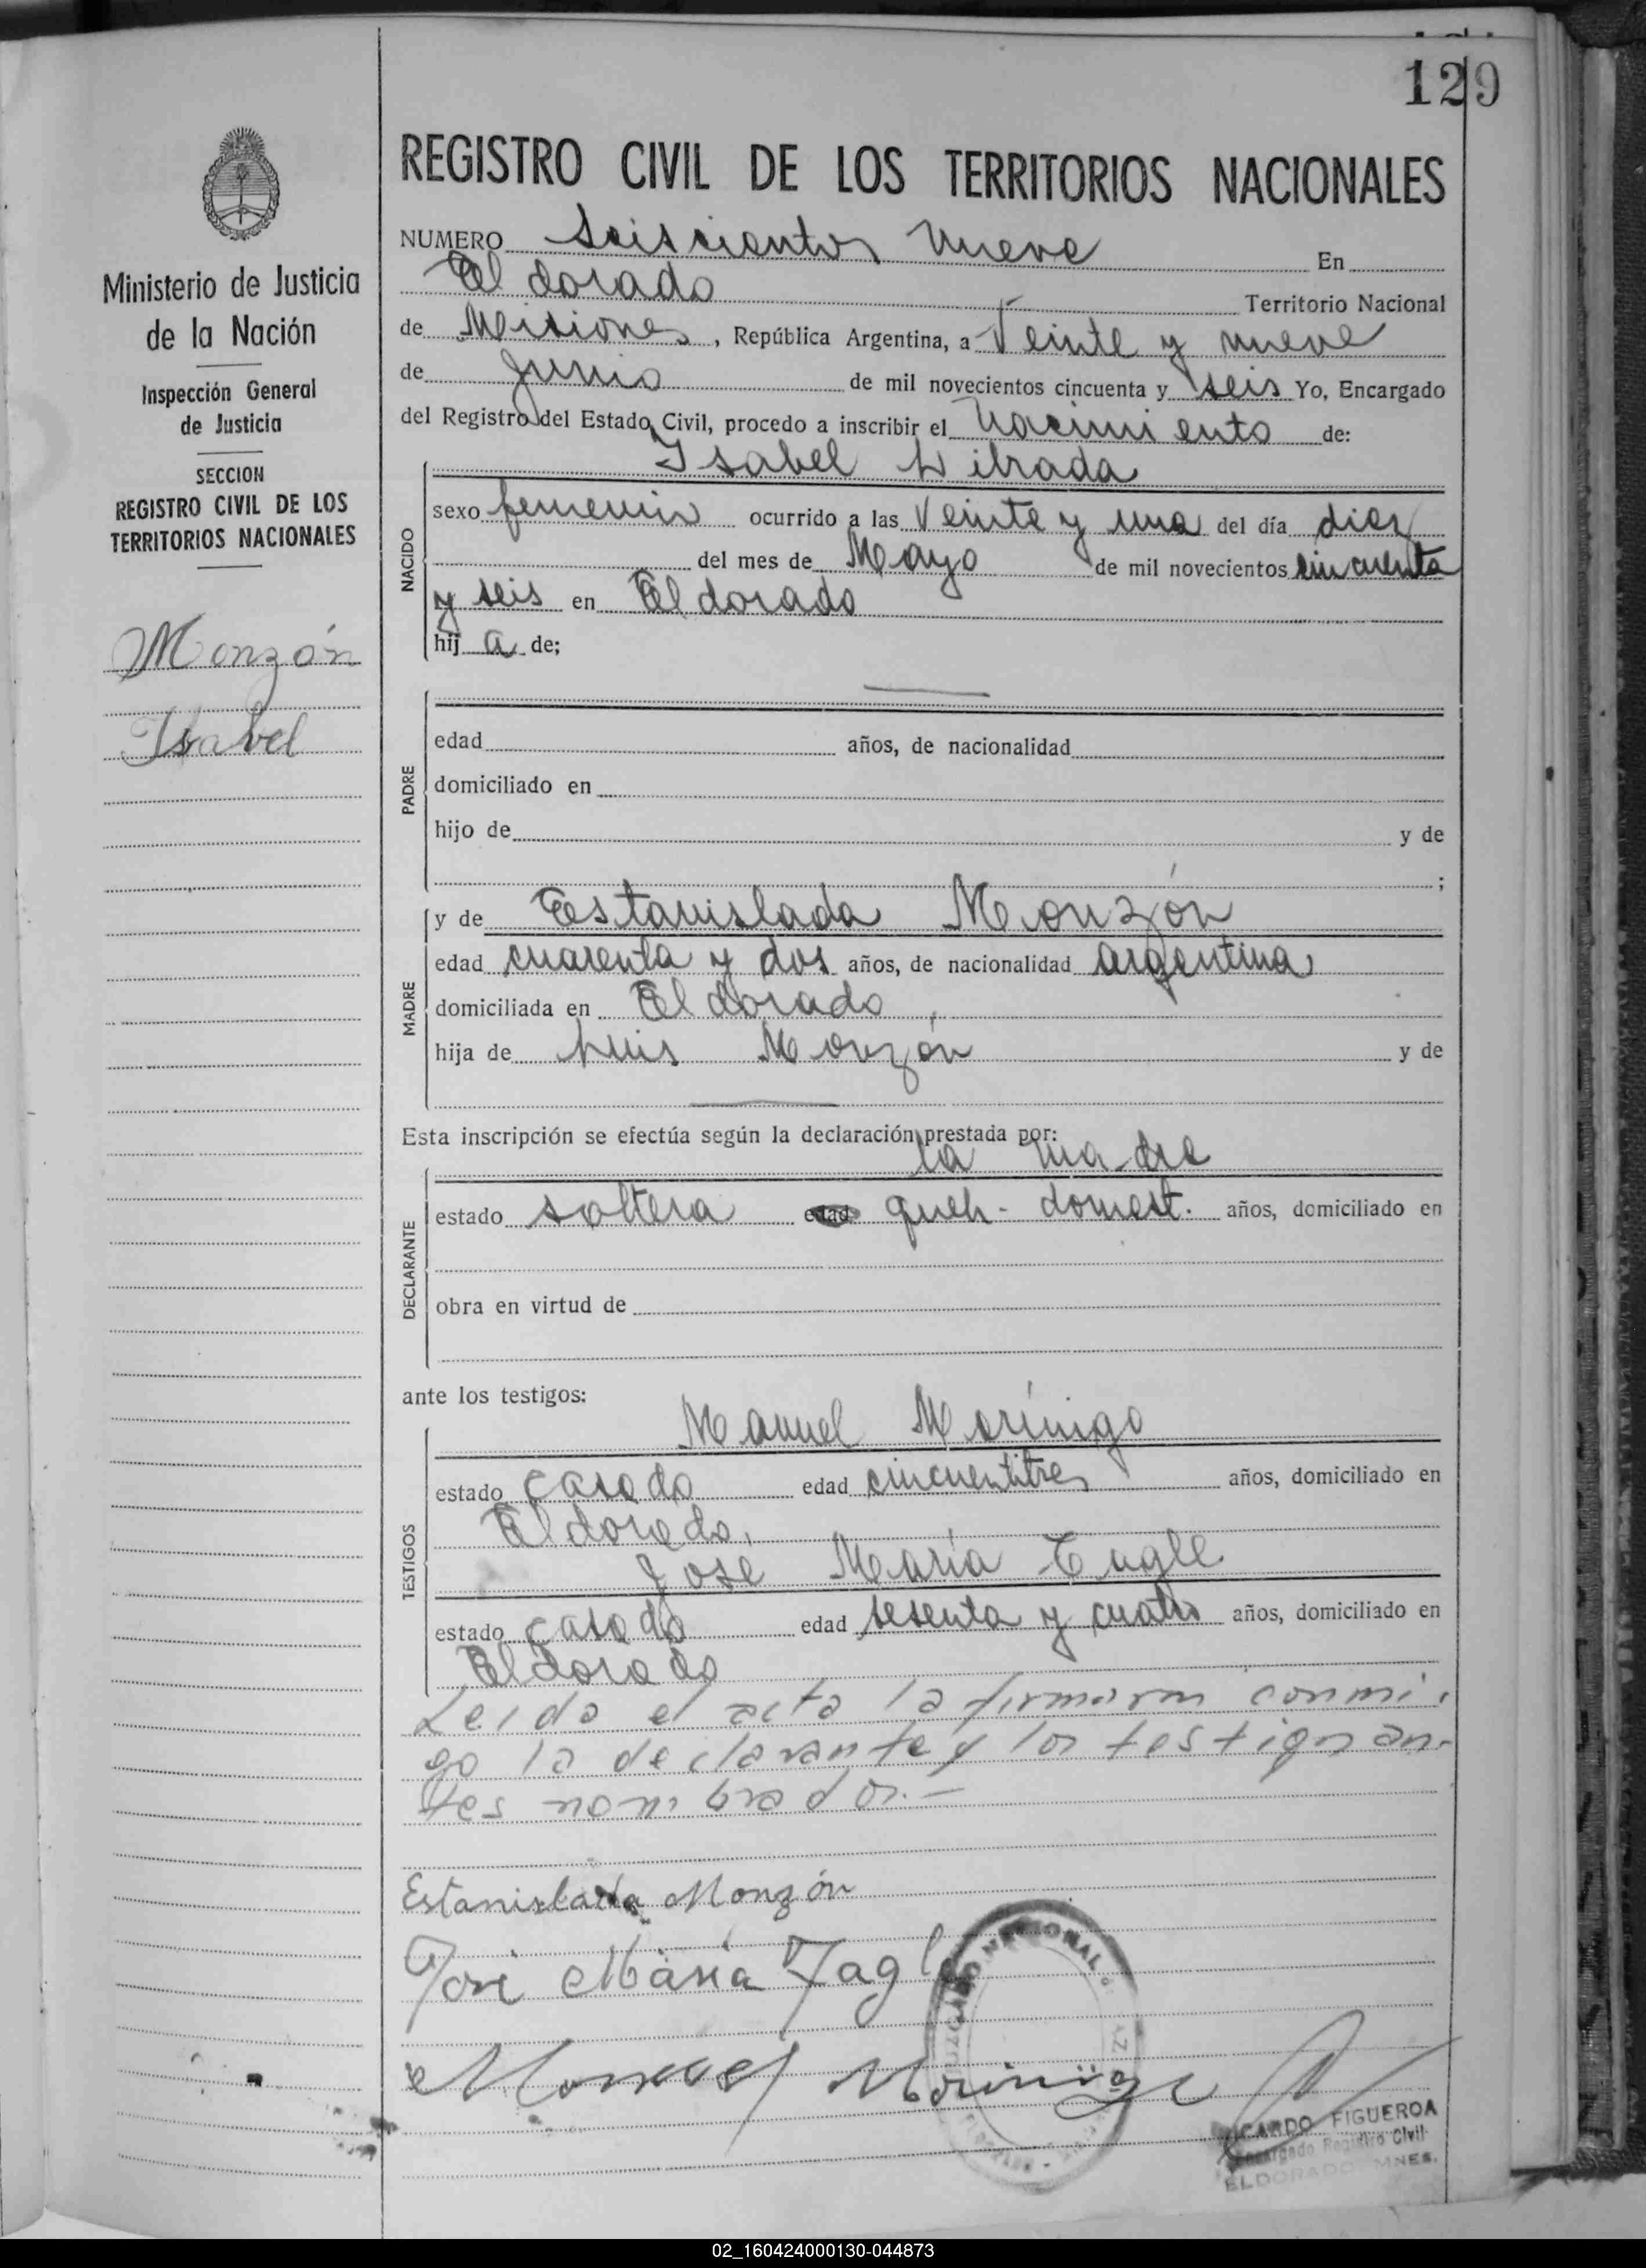 129
REGISTRO CIVIL DE LOS TERRITORIOS NACIONALES
Ministerio de Justicia
de la Nación
Inspección General
de Justicia
SECCION
REGISTRO CIVIL DE LOS
TERRITORIOS NACIONALES
Monzón
Isabel
NUMERO Seiscientos Nueve En
Eldorado Territorio Nacional
de Misiones, República Argentina, a Veinte y nueve
de Junio de mil novecientos cincuenta y seis Yo, Encargado
del Registro del Estado Civil, procedo a inscribir el Nacimiento de:
Isabel Librada
NACIDO
sexo femenin ocurrido a las Veinte y una del día diez
del mes de Mayo de mil novecientos cincuenta
y seis en Eldorado
hij a de;
PADRE
edad años, de nacionalidad
domiciliado en
hijo de y de
;
MADRE
y de Estanislada Monzón
edad cuarenta y dos años, de nacionalidad argentina
domiciliada en Eldorado,
hija de Luis Monzón y de
Esta inscripción se efectúa según la declaración prestada por:
la madre
DECLARANTE
estado soltera edad queh. domest. años, domiciliado en
obra en virtud de
ante los testigos:
Manuel Morínigo
TESTIGOS
estado casado edad cincuentitres años, domiciliado en
Eldorado.
José María Tagle
estado casado edad sesenta y cuatro años, domiciliado en
Eldorado
Leida el acta la firmaron conmi-
go la declarante y los testigos an-
tes nombrados.-
Estanislada Monzón
José María Tagle
Manuel Morinigo
NACIONAL
CARDO FIGUEROA
Encargado Registro Civil
ELDORADO MNES.
02_160424000130-044873